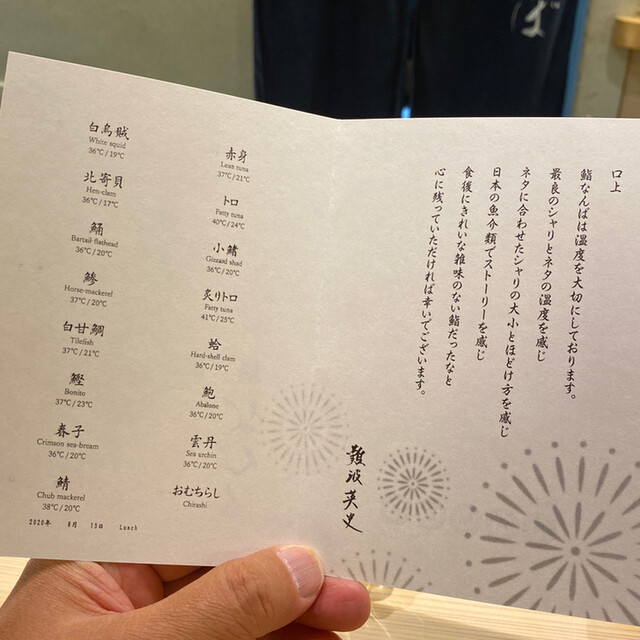 ば
白烏賊
White squid
36℃/19℃
北寄貝
Hen-clam
36℃/17℃
鯒
Bartail flathead
36℃/20℃
鯵
Horse-mackerel
37℃/20℃
白甘鯛
Tilefish
37℃/21℃
鰹
Bonito
37℃/23℃
春子
Crimson sea-bream
36℃/20℃
鯖
Chub mackerel
38℃/20℃
2020年 8月 15日 Lunch
赤身
Lean tuna
37℃/21℃
トロ
Fatty tuna
40℃/24℃
小鰭
Gizzard shad
36℃/20℃
炙りトロ
Fatty tuna
41℃/25℃
蛤
Hard-shell clam
36℃/19℃
鮑
Abalone
36℃/20℃
雲丹
Sea urchin
36℃/20℃
おむちらし
Chirashi
口上
鮨なんばは温度を大切にしております。
最良のシャリとネタの温度を感じ
ネタに合わせたシャリの大小とほどけ方を感じ
日本の魚介類でストーリーを感じ
食後にきれいな雑味のない鮨だったなと
心に残っていただければ幸いでございます。
難波英史